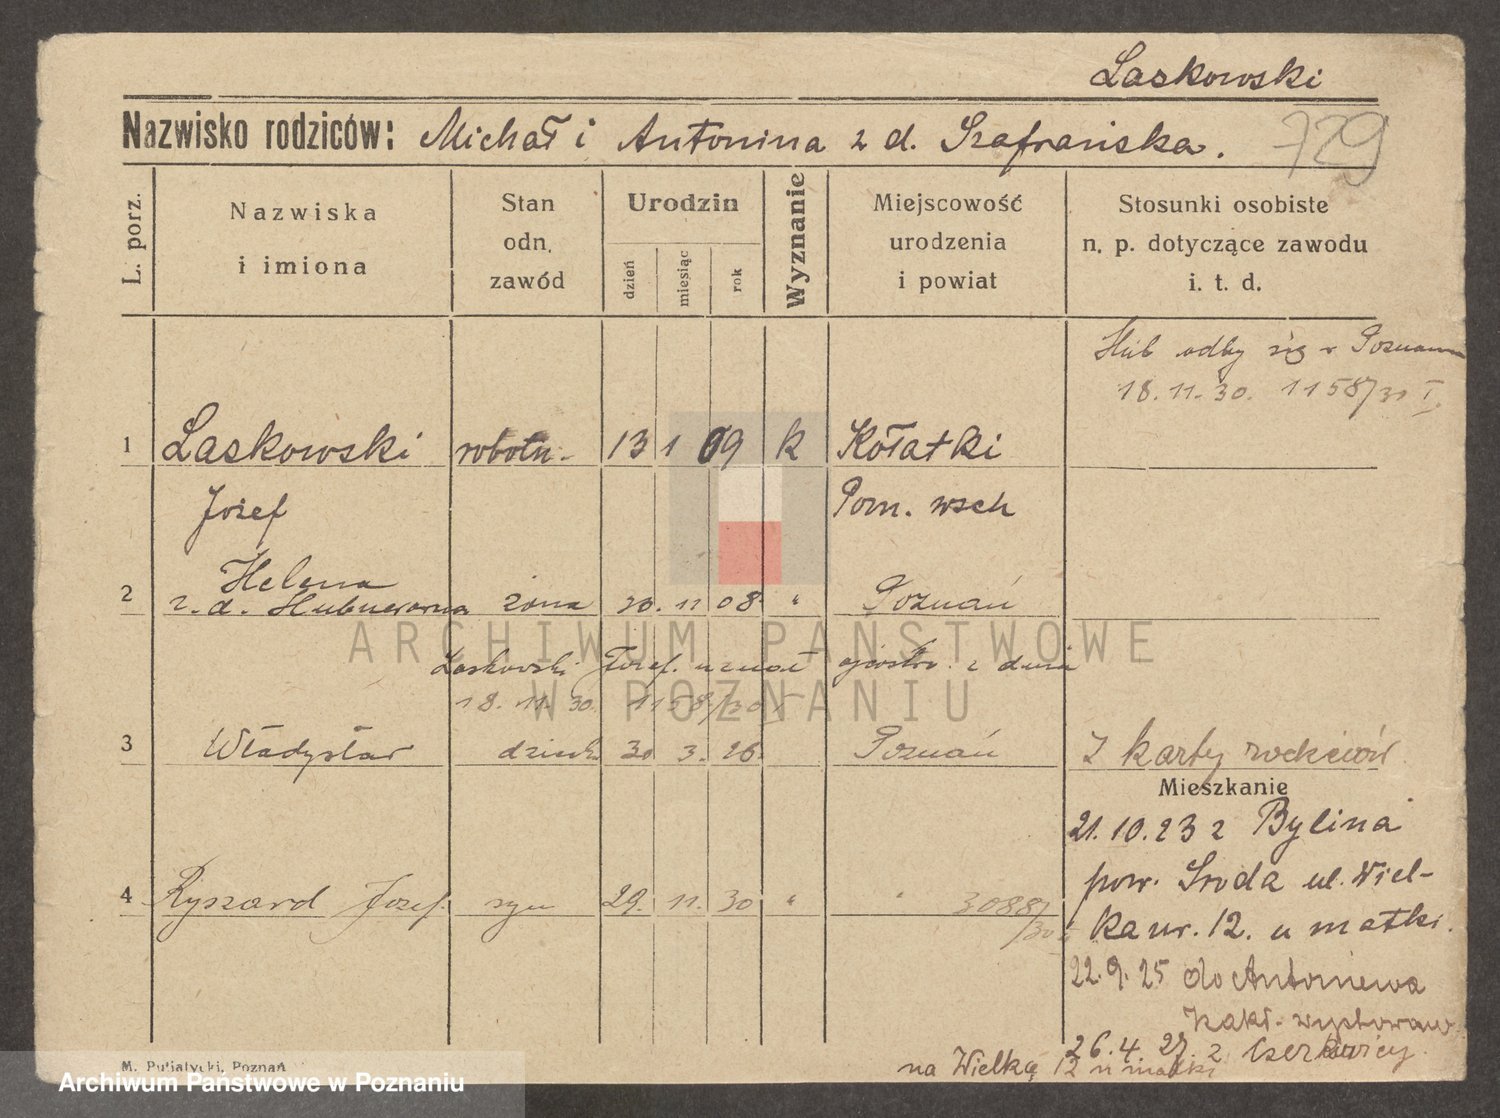 Laskowski
Nazwisko rodziców: Michał i Antonina z d. Szafrańska.
729
L. porz.
Nazwiska
i imiona
Stan
odn.
zawód
Urodzin
dzień
miesiąc
rok
Wyznanie
Miejscowość
urodzenia
i powiat
Stosunki osobiste
n. p. dotyczące zawodu
i. t. d.
Ślub odby się w Poznaniu
18.11.30. 1158/30 I.
1 Laskowski robotn. 13 1 09 k Kołatki
Józef Pom. wsch
Helena
2 z. d. Hubnerówna żona 20. 11 08 " Poznań
ARCHIWUM PAŃSTWOWE
Laskowski Józef uznał ojcostwo z dnia
W POZNANIU
18. 11. 30. 1158/30 I
3 Władysław dziecko 30 3. 26. Poznań Z karty rodziców
Mieszkanie
21.10.23 z Bylina
pow. Środa ul. Wiel-
4 Ryszard Józef. syn 29. 11. 30 " " 3088/30 I
ka nr. 12. u matki.
22.9.25 do Antoniewa
zakł. wychowaw
26.4.27. z Czerwicy.
na Wielką 12 u matki
M. Putiatycki, Poznań
Archiwum Państwowe w Poznaniu